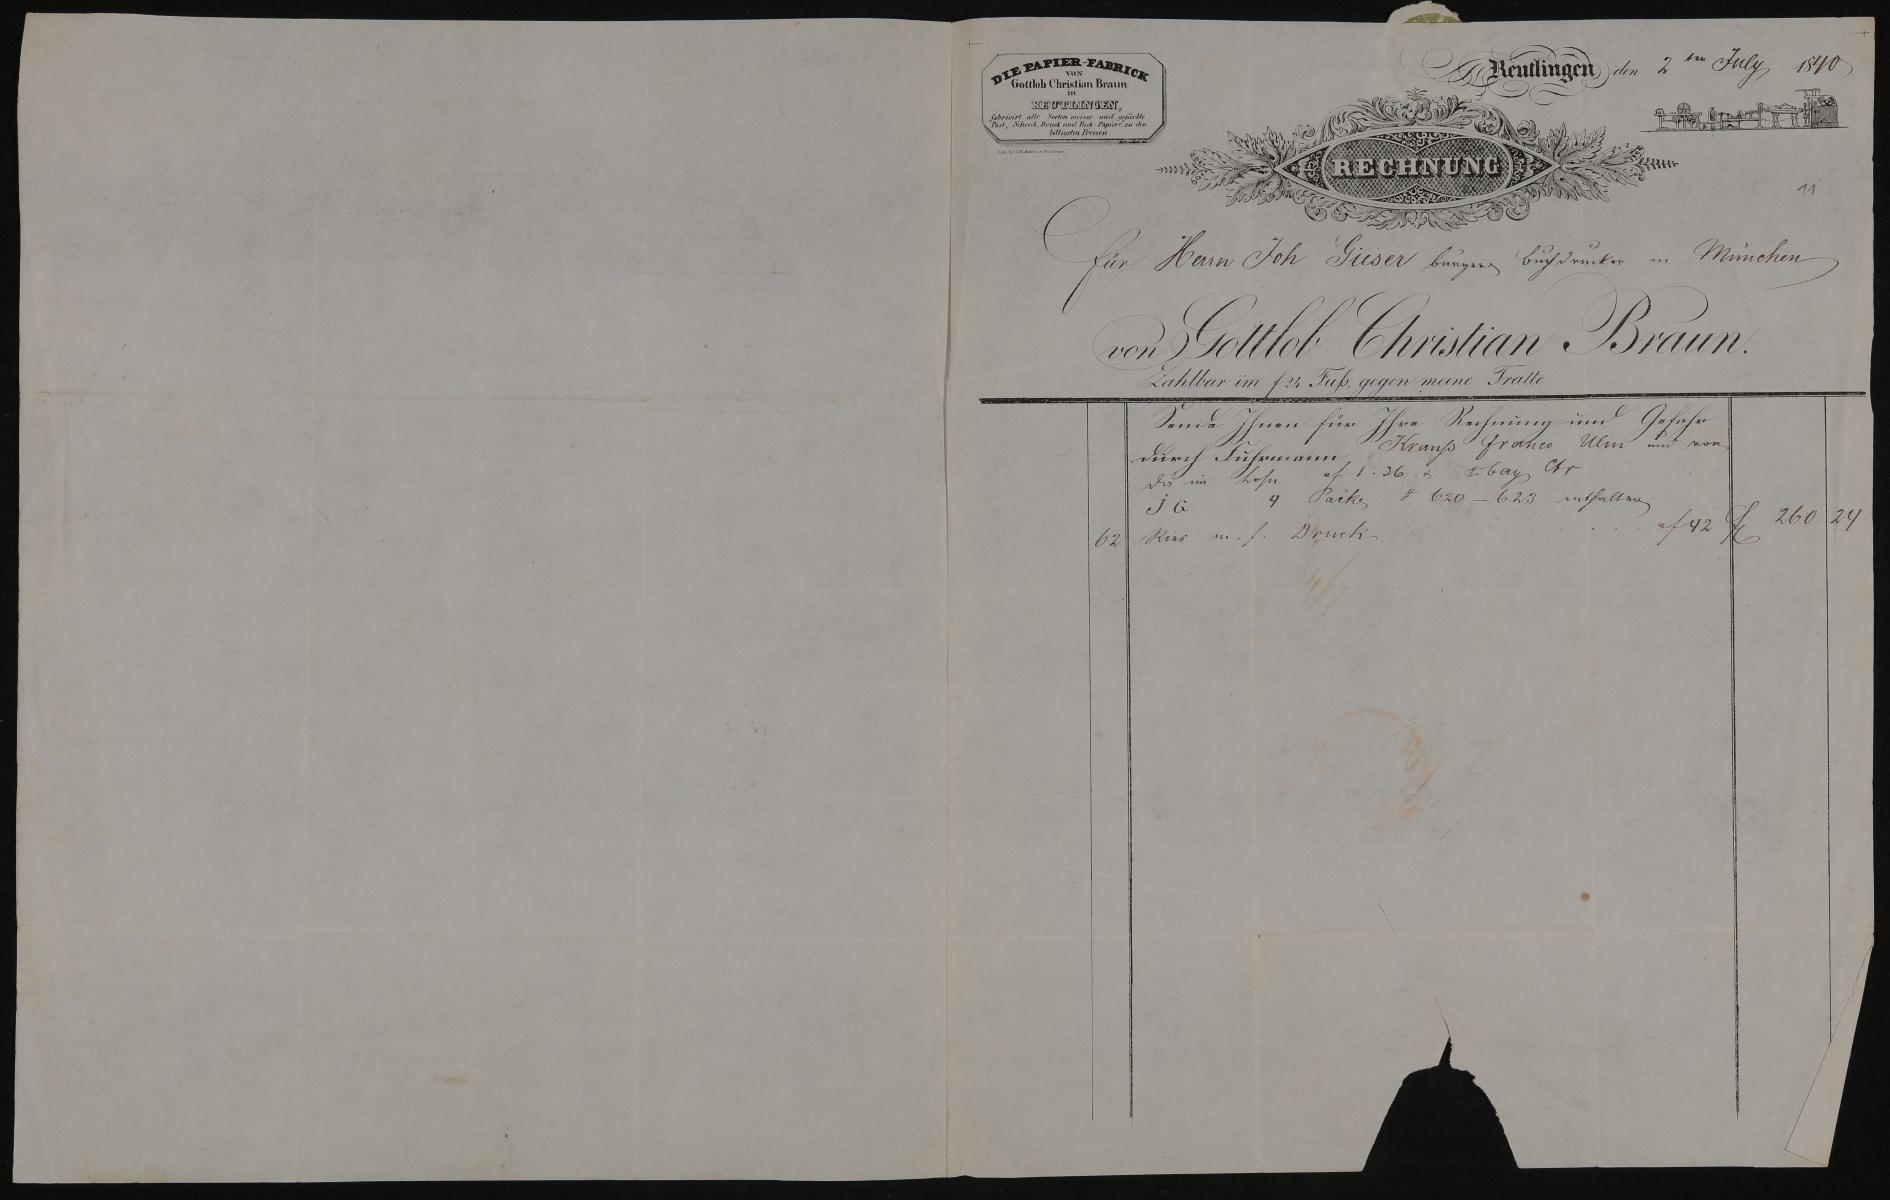 DIE PAPIER-FABRICK
VON
Gottlob Christian Braun
in
REUTLINGEN,
fabricirt alle Sorten weisse und gefärbte
Post, Schreib, Druck und Pack-Papiere, zu den
billigsten Preisen.
Reutlingen den 2ten July 1840
RECHNUNG
11
Für Herrn Joh Gieser Buchdrucker in München
von Gottlob Christian Braun.
Zahlbar im f 24 Fuß, gegen meine Tratte
Sende Ihnen für Ihre Rechnung und Gefahr
durch Fuhrmann Krauß franco Ulm und von
da im Lohn af 1.36 x Ctr
J G 4 Päcke # 620 – 623 enthalten
62 Ries m. f. Druck af 42 f 260 24